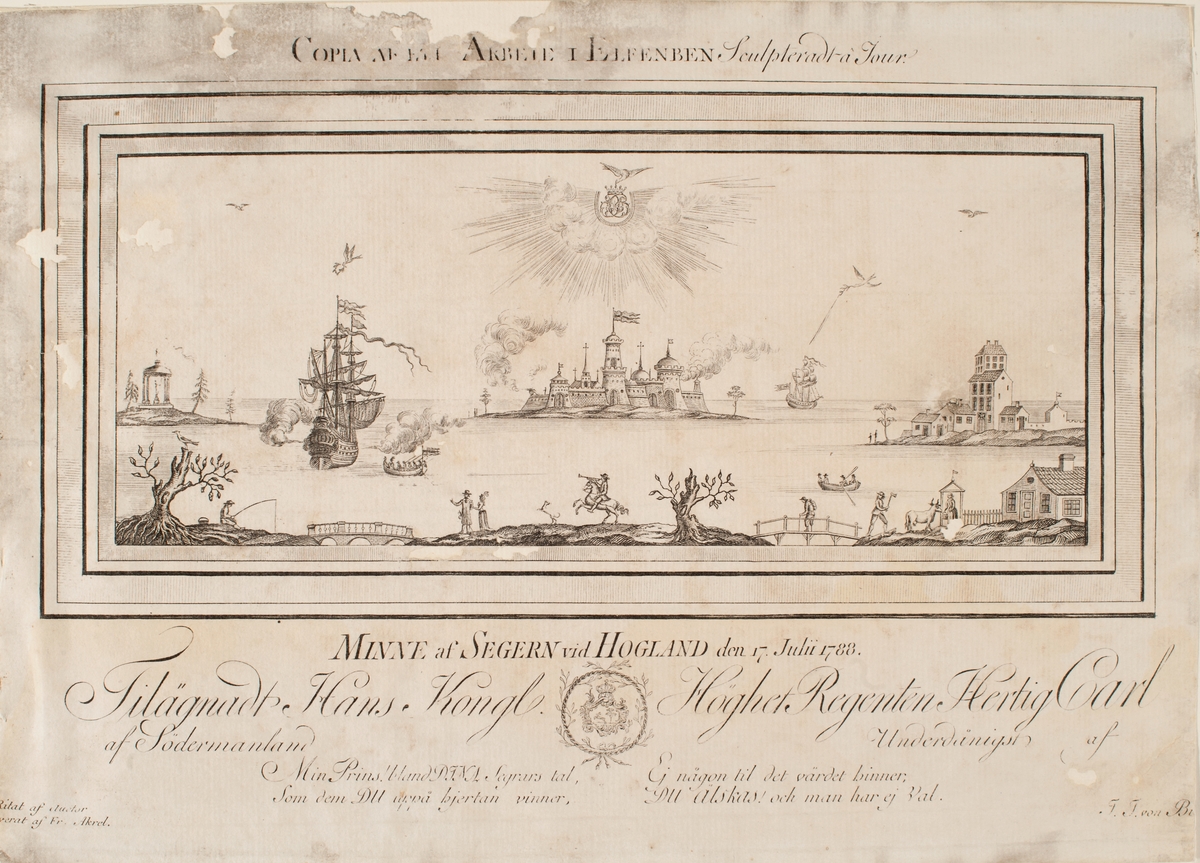 COPIA AF ETT ARBETE I ELFENBEN Sculpteradt à Jour.
MINNE af SEGERN vid HOGLAND den 17. Julii 1788.
Tilägnadt Hans Kongl. Höghet Regenten Hertig Carl
af Södermanland Underdånigst af
Min Prins! bland DINA Segrars tal,
Som dem DU uppå hjertan vinner,
Ej någon til det värdet hinner;
DU Älskas! och man har ej Val.
Ritat af auctor
verat af Fr. Akrel.
F. F. von Bi